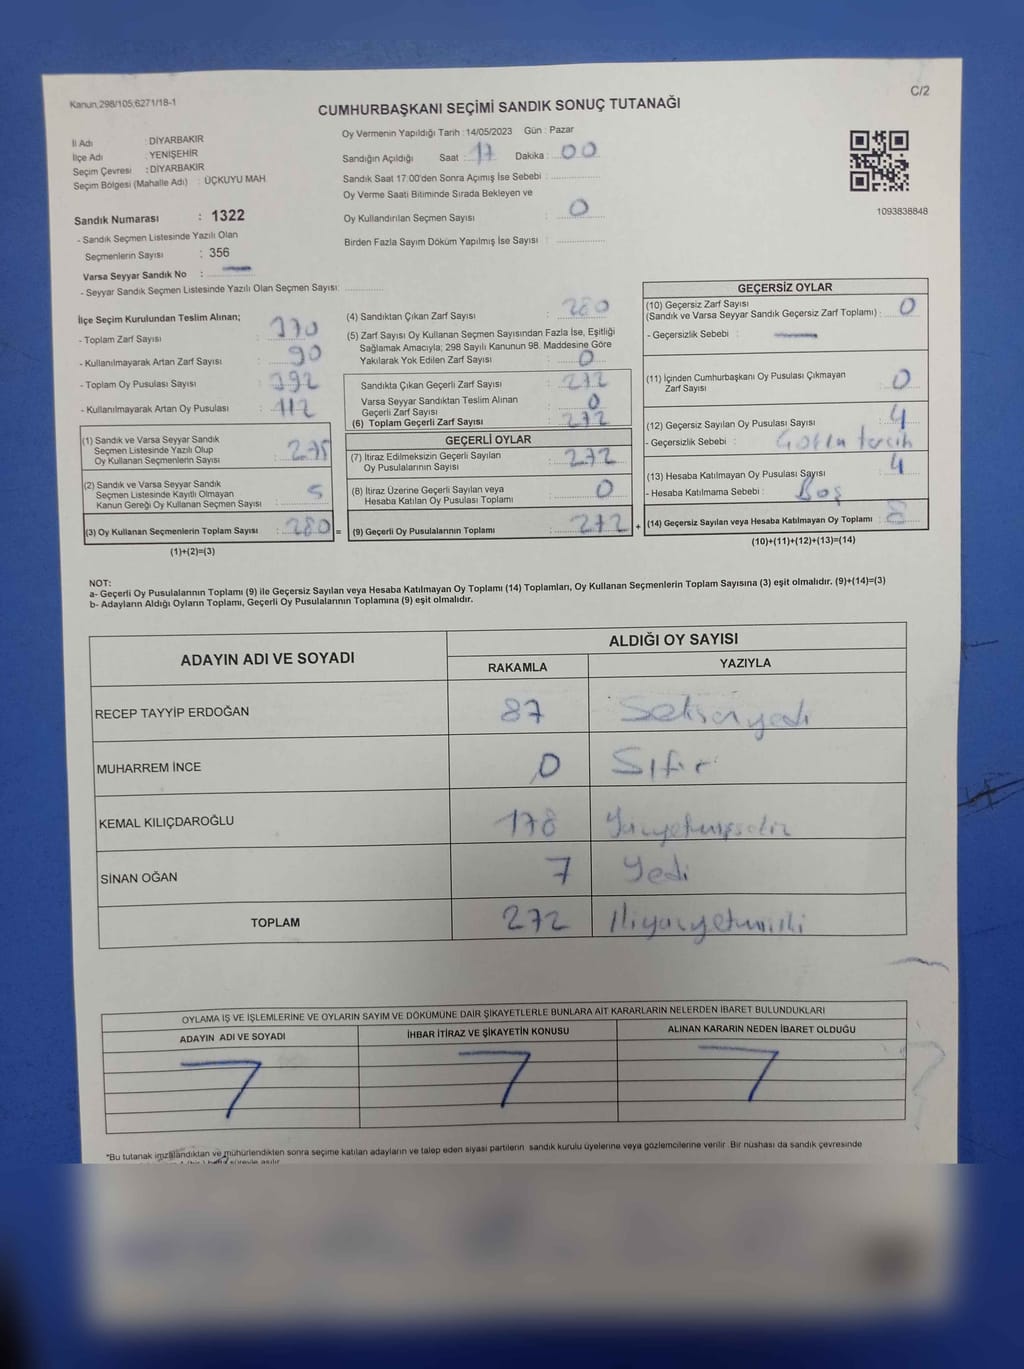 Kanun,298/105,6271/18-1
C/2
CUMHURBAŞKANI SEÇİMİ SANDIK SONUÇ TUTANAĞI
İl Adı : DİYARBAKIR
İlçe Adı : YENİŞEHİR
Seçim Çevresi : DİYARBAKIR
Seçim Bölgesi (Mahalle Adı) : ÜÇKUYU MAH
Sandık Numarası : 1322
- Sandık Seçmen Listesinde Yazılı Olan
Seçmenlerin Sayısı : 356
Varsa Seyyar Sandık No :
- Seyyar Sandık Seçmen Listesinde Yazılı Olan Seçmen Sayısı:
Oy Vermenin Yapıldığı Tarih :14/05/2023 Gün : Pazar
Sandığın Açıldığı Saat : 17 Dakika : 00
Sandık Saat 17:00'den Sonra Açımış İse Sebebi :
Oy Verme Saati Bitiminde Sırada Bekleyen ve
Oy Kullandırılan Seçmen Sayısı : 0
Birden Fazla Sayım Döküm Yapılmış İse Sayısı :
1093838848
İlçe Seçim Kurulundan Teslim Alınan;
- Toplam Zarf Sayısı : 370
- Kullanılmayarak Artan Zarf Sayısı : 90
- Toplam Oy Pusulası Sayısı : 392
- Kullanılmayarak Artan Oy Pusulası : 112
(1) Sandık ve Varsa Seyyar Sandık
Seçmen Listesinde Yazılı Olup
Oy Kullanan Seçmenlerin Sayısı : 275
(2) Sandık ve Varsa Seyyar Sandık
Seçmen Listesinde Kayıtlı Olmayan
Kanun Gereği Oy Kullanan Seçmen Sayısı : 5
(3) Oy Kullanan Seçmenlerin Toplam Sayısı : 280 =
(1)+(2)=(3)
(4) Sandıktan Çıkan Zarf Sayısı : 280
(5) Zarf Sayısı Oy Kullanan Seçmen Sayısından Fazla İse, Eşitliği
Sağlamak Amacıyla; 298 Sayılı Kanunun 98. Maddesine Göre
Yakılarak Yok Edilen Zarf Sayısı : 0
Sandıkta Çıkan Geçerli Zarf Sayısı : 272
Varsa Seyyar Sandıktan Teslim Alınan
Geçerli Zarf Sayısı : 0
(6) Toplam Geçerli Zarf Sayısı : 272
GEÇERLİ OYLAR
(7) İtiraz Edilmeksizin Geçerli Sayılan
Oy Pusulalarının Sayısı : 272
(8) İtiraz Üzerine Geçerli Sayılan veya
Hesaba Katılan Oy Pusulası Toplamı : 0
(9) Geçerli Oy Pusulalarının Toplamı : 272 +
GEÇERSİZ OYLAR
(10) Geçersiz Zarf Sayısı
(Sandık ve Varsa Seyyar Sandık Geçersiz Zarf Toplamı) : 0
- Geçersizlik Sebebi :
(11) İçinden Cumhurbaşkanı Oy Pusulası Çıkmayan
Zarf Sayısı : 0
(12) Geçersiz Sayılan Oy Pusulası Sayısı : 4
- Geçersizlik Sebebi : tercih
(13) Hesaba Katılmayan Oy Pusulası Sayısı : 4
- Hesaba Katılmama Sebebi : Boş
(14) Geçersiz Sayılan veya Hesaba Katılmayan Oy Toplamı : 8
(10)+(11)+(12)+(13)=(14)
NOT:
a- Geçerli Oy Pusulalarının Toplamı (9) ile Geçersiz Sayılan veya Hesaba Katılmayan Oy Toplamı (14) Toplamları, Oy Kullanan Seçmenlerin Toplam Sayısına (3) eşit olmalıdır. (9)+(14)=(3)
b- Adayların Aldığı Oyların Toplamı, Geçerli Oy Pusulalarının Toplamına (9) eşit olmalıdır.
ADAYIN ADI VE SOYADI ALDIĞI OY SAYISI
RAKAMLA YAZIYLA
RECEP TAYYİP ERDOĞAN 87 Seksenyedi
MUHARREM İNCE 0 Sıfır
KEMAL KILIÇDAROĞLU 178 Yüzyetmişsekiz
SİNAN OĞAN 7 Yedi
TOPLAM 272 İkiyüzyetmişiki
OYLAMA İŞ VE İŞLEMLERİNE VE OYLARIN SAYIM VE DÖKÜMÜNE DAİR ŞİKAYETLERLE BUNLARA AİT KARARLARIN NELERDEN İBARET BULUNDUKLARI
ADAYIN ADI VE SOYADI İHBAR İTİRAZ VE ŞİKAYETİN KONUSU ALINAN KARARIN NEDEN İBARET OLDUĞU
*Bu tutanak imzalandıktan ve mühürlendikten sonra seçime katılan adayların ve talep eden siyasi partilerin sandık kurulu üyelerine veya gözlemcilerine verilir. Bir nüshası da sandık çevresinde